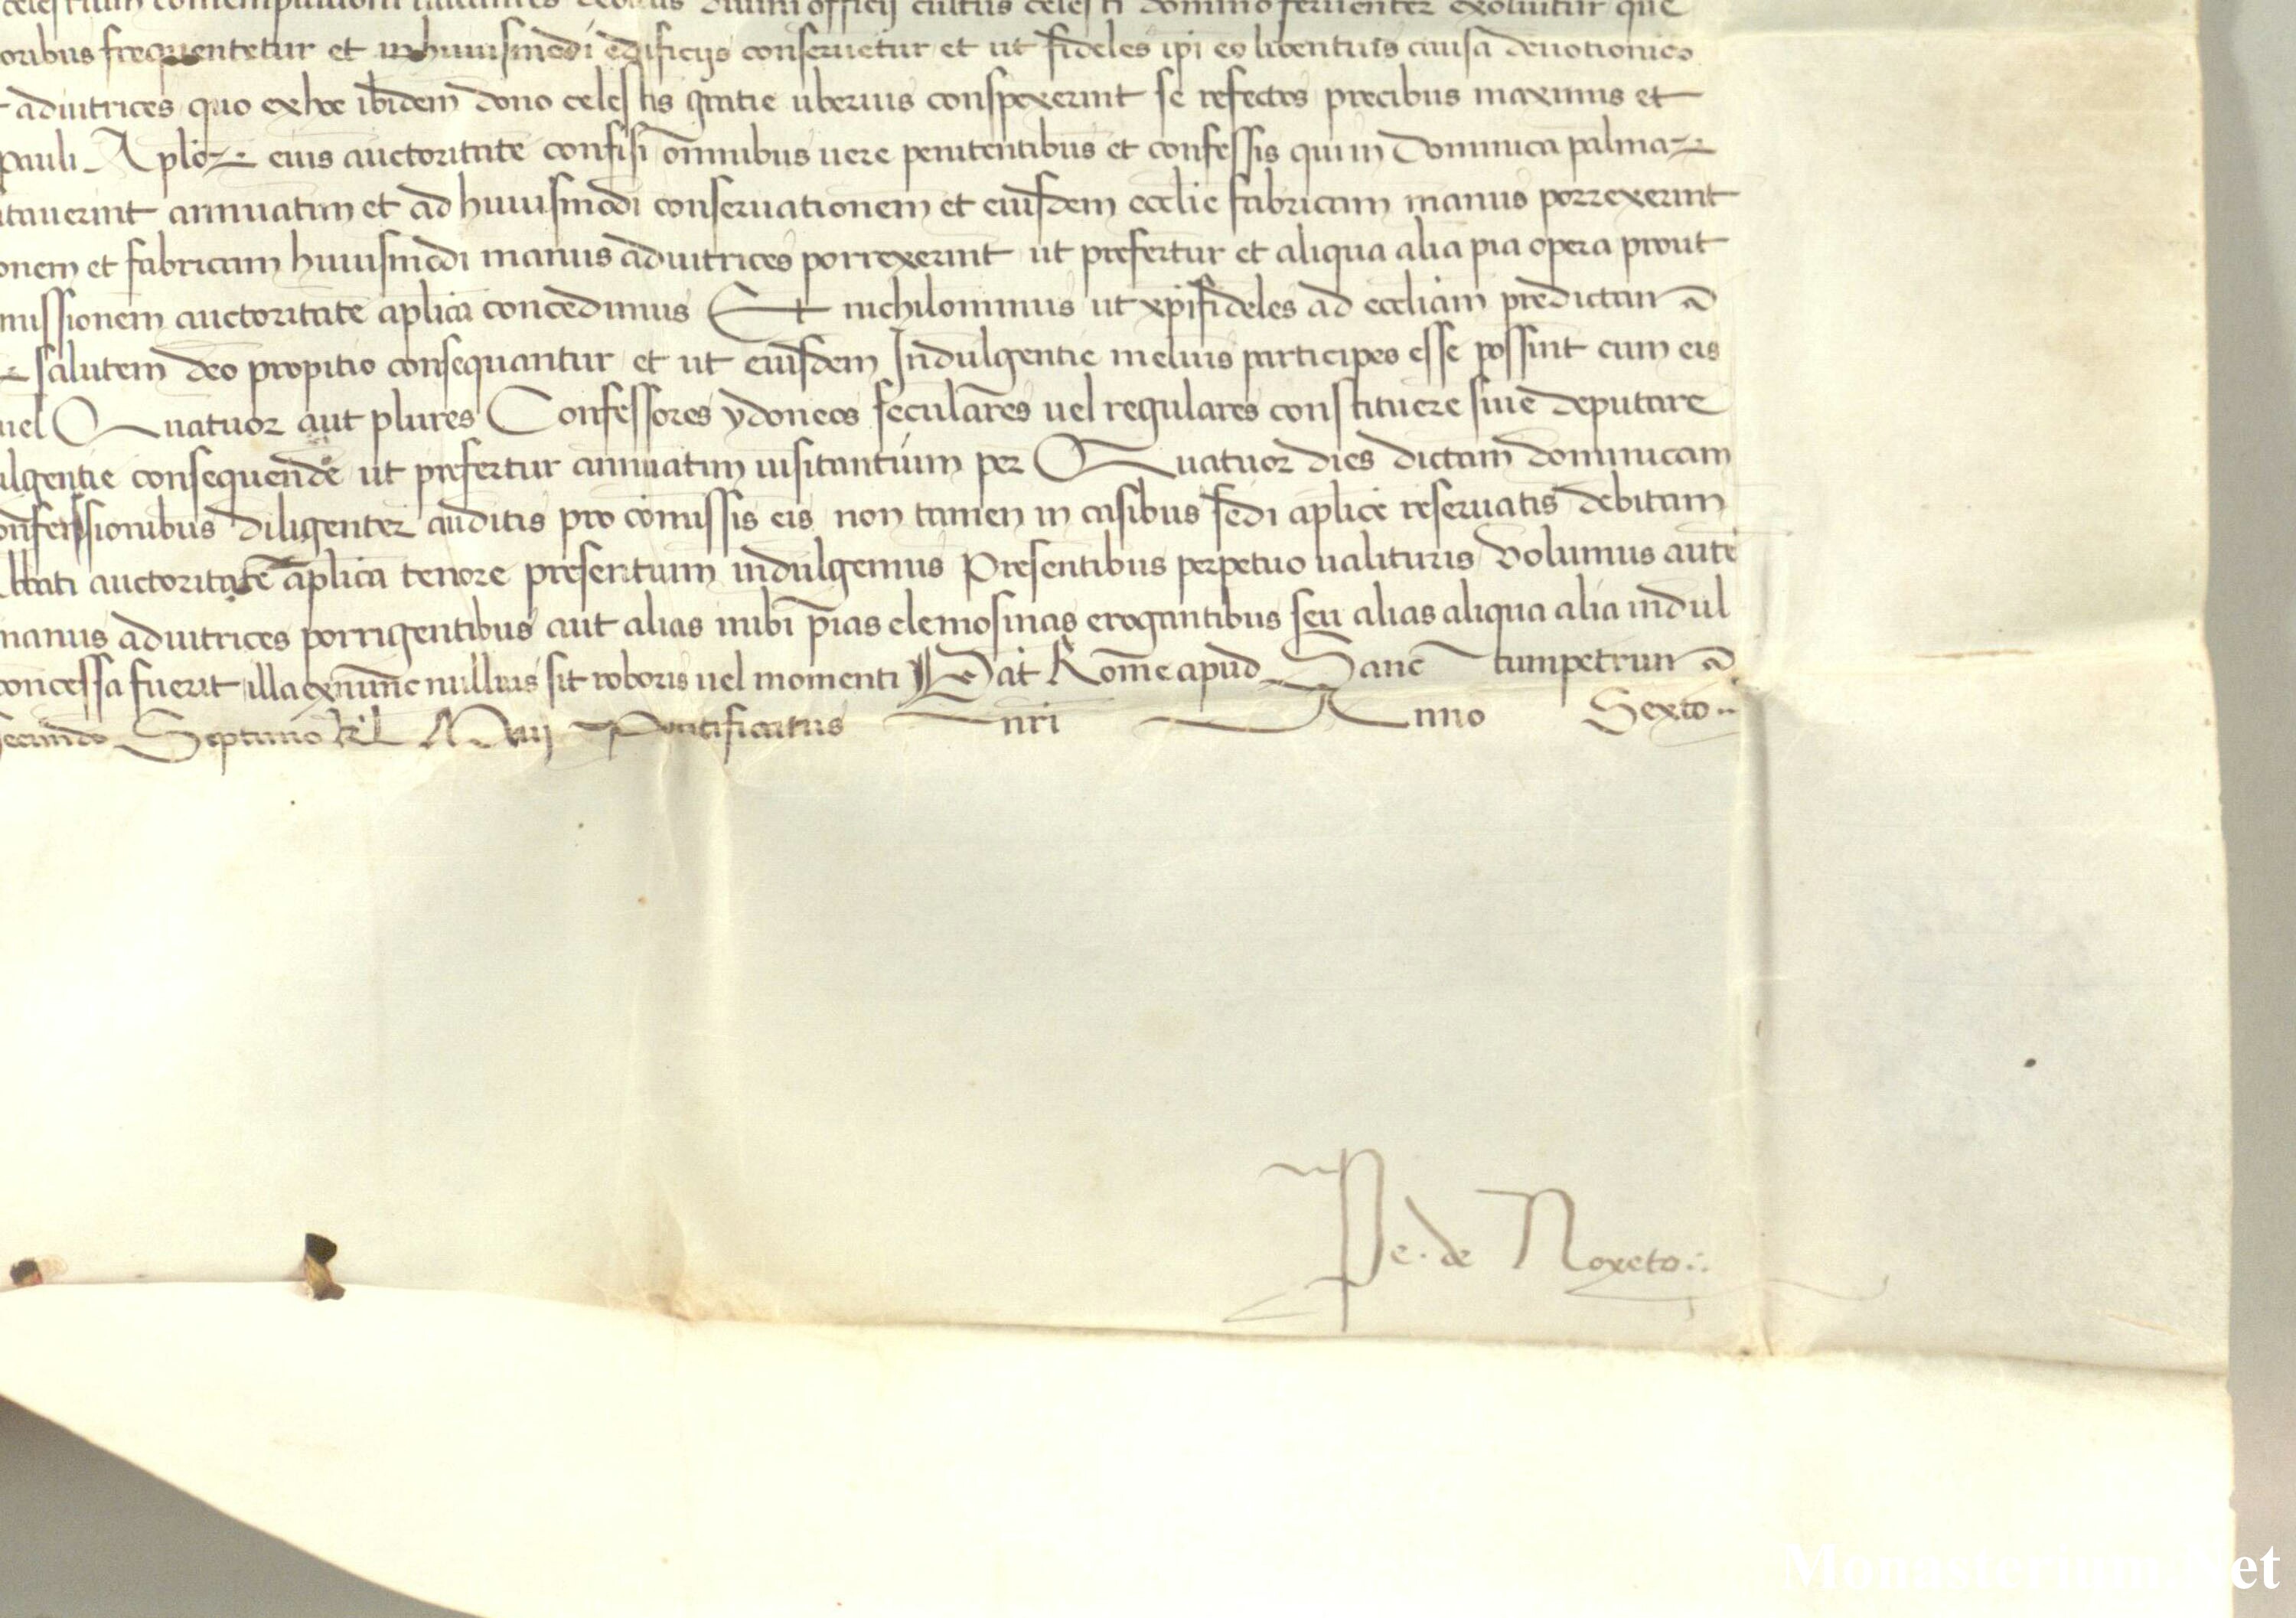 celestium contemplationi debitus divini officij cultus celesti domino feruenter exoluitur que
oribus frequentetur et in huiusmodi edificijs conseruetur et ut fideles ip̄i eo libentius causa deuotionis
adiutrices quo ex hoc ibidem dono celestis gratie uberius conspexerint se refectos precibus maximis et
pauli Aplōꝝ eius auctoritate confisi om̄nibus uere penitentibus et confessis qui in Dominica palmaꝝ
itauerint annuatim et ad huiusmodi conseruationem et eiusdem eccl̄ie fabricam manus porrexerint
onem et fabricam huiusmodi manus adiutrices porrexerint ut prefertur et aliqua alia pia opera prout
missionem auctoritate ap̄lica concedimus Et nichilominus ut xp̄ifideles ad eccl̄iam predictam
salutem deo propitio consequantur et ut eiusdem Indulgentie melius participes esse possint cum eis
uel Quatuor aut plures Confessores ydoneos seculares uel regulares constituere siue deputare
ulgentie consequende ut prefertur annuatim uisitantium per Quatuor dies dictam dominicam
onfessionibus diligenter auditis pro com̄issis eis non tamen in casibus sedi ap̄lice reseruatis debitam
ltati auctoritate ap̄lica tenore presentium indulgemus Presentibus perpetuo ualituris Volumus autē
manus adiutrices porrigentibus aut alias inibi pias elemosinas erogantibus seu alias aliqua alia indul
concessa fuerit illa exnunc nullius sit roboris uel momenti Dat̄ Rome apud Sanctumpetrum
secundo Septimo kl̄ Maij Pontificatus nr̄i Anno Sexto
Pe. de Noxeto
Monasterium.Net